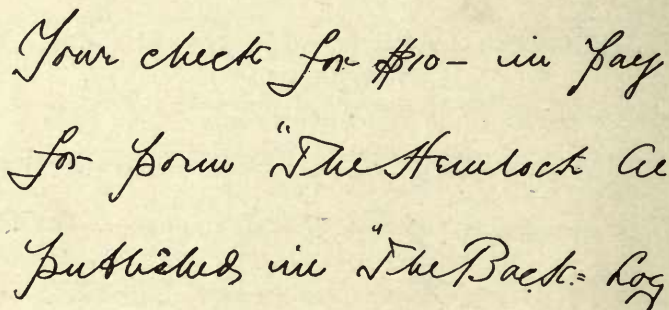 Your check for $10- in pay
for poem "The Hemlock Ae
published in "The Back=Log